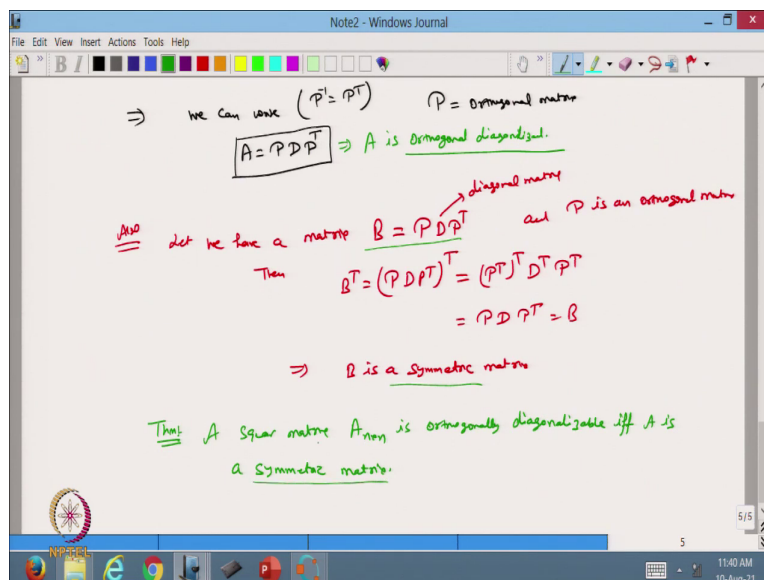 Note2 - Windows Journal
File Edit View Insert Actions Tools Help
⇒ we can write (P⁻¹ = Pᵀ) P = orthogonal matrix
A = PDPᵀ ⇒ A is orthogonal diagonalized.
Also Let we have a matrix B = PDPᵀ → diagonal matrix and P is an orthogonal matrix
Then Bᵀ = (PDPᵀ)ᵀ = (Pᵀ)ᵀ Dᵀ Pᵀ
= PDPᵀ = B
⇒ B is a symmetric matrix
Thm:- A squar matrix Aₙₓₙ is orthogonally diagonalizable iff A is
a symmetric matrix.
NPTEL
5/5
5
11:40 AM
10-Aug-21